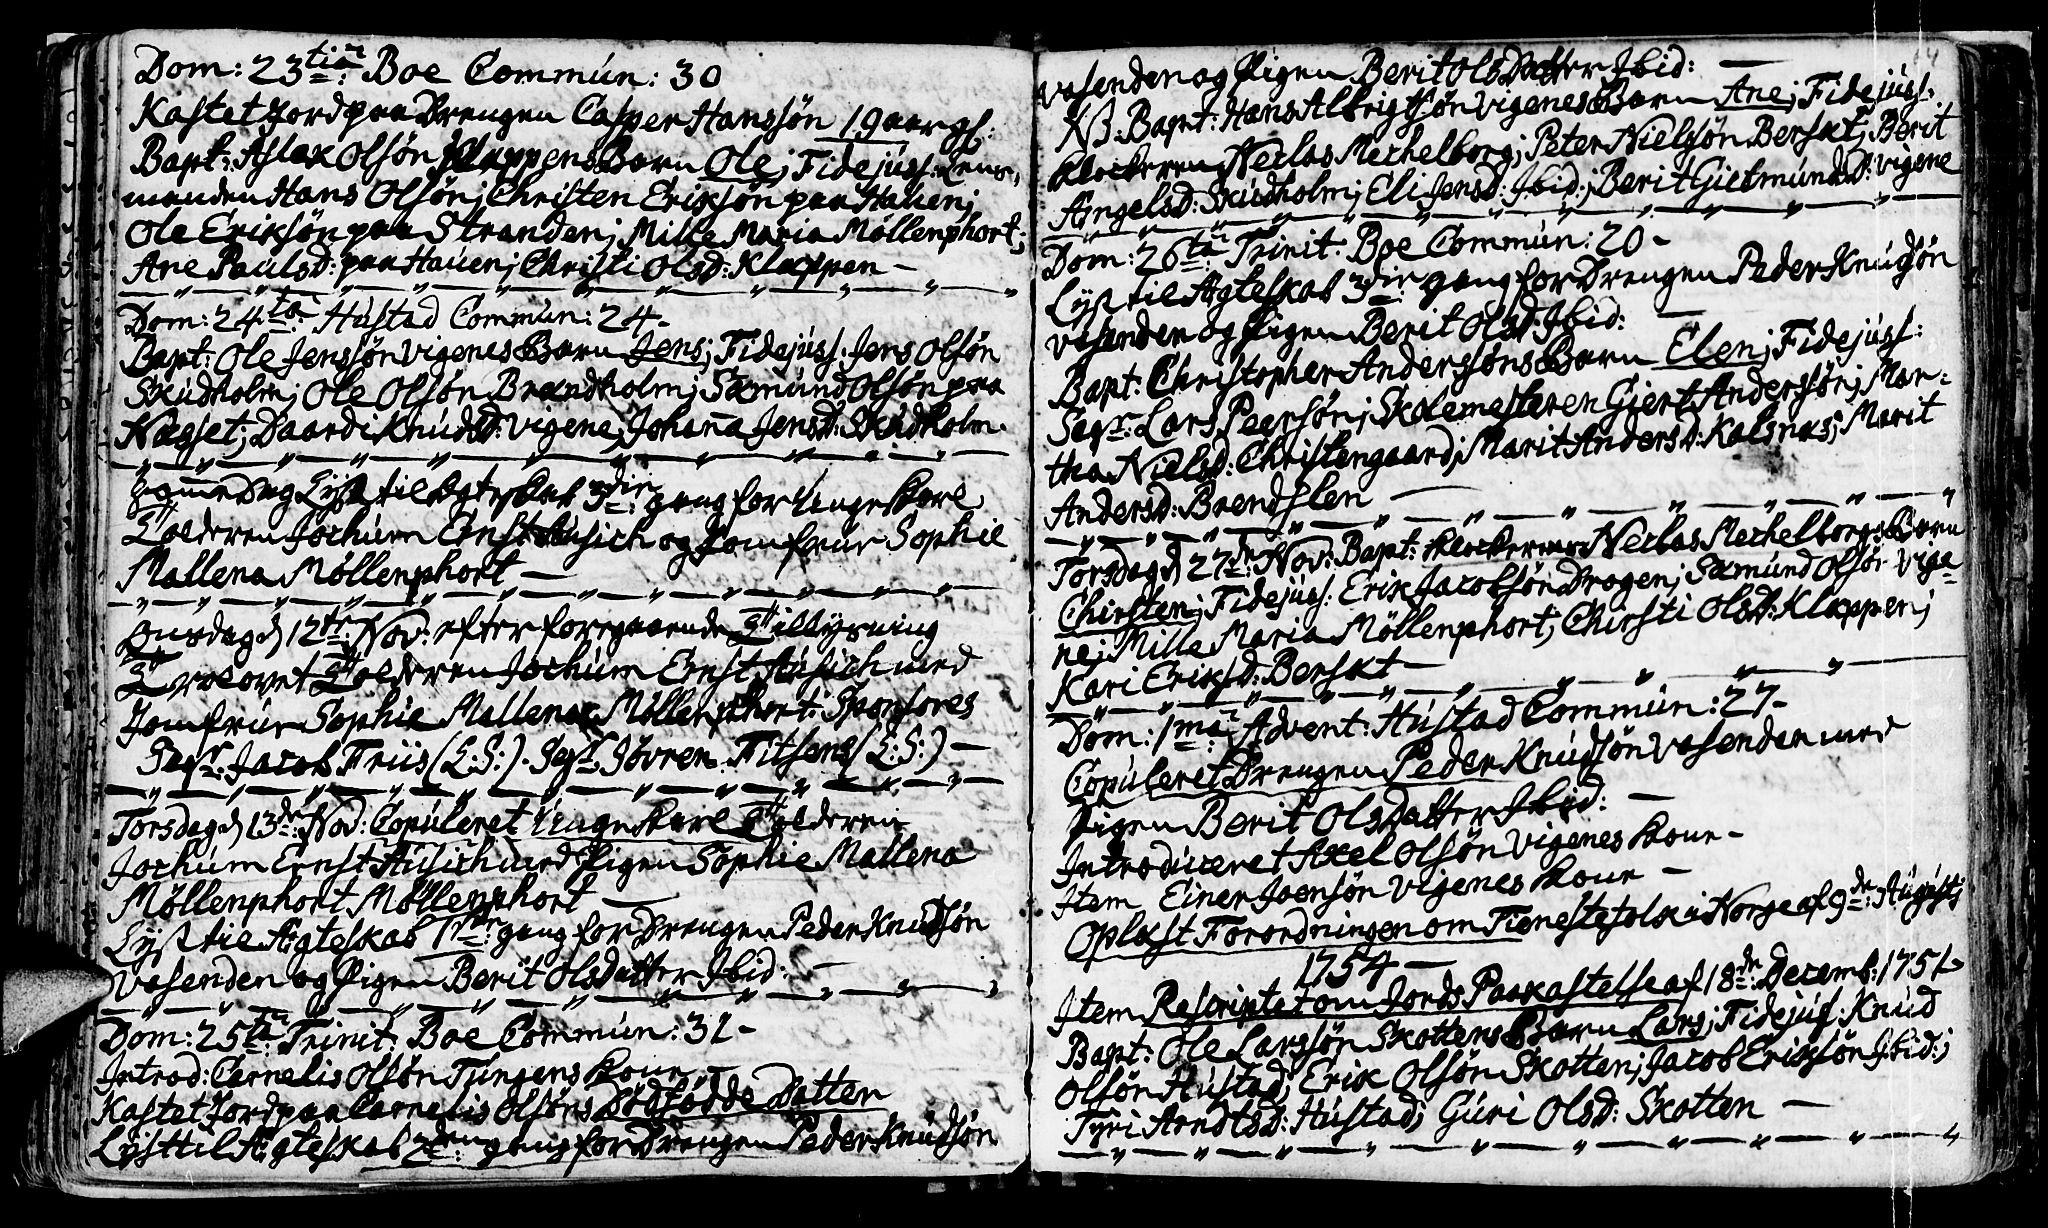 Dom: 23tia: Boe Commún: 30
Kastet Jord paa Drengen Casper Hanssön 19 aar gl:
Bapt: Aslak Olsön Klappens Barn Ole; Fidejúss: Lens-
manden Hans Olsön; Christen Eriksön paa Hauen;
Ole Eriksön paa Stranden; Mille Maria Möllenphort;
Ane Paulsd: paa Hauen; Christi Olsd: Klappen —
Dom: 24ta: Hústad Commún: 24 –
Bapt: Ole Jenssön Vigenes Barn Jens; Fidejúss: Jens Olsön
Skúdholm; Ole Olsön Brandholm; Sæmúnd Olsön paa
Næsset; Baardi Knúdsd: Vigene; Johaña Jensd: Skúdholm.
Dag Lÿst til Ægteskab 3die: gang for Unge Karl
Tolderen Jochúm Ernst Húsich og Jomfrue Sophie
Mallena Möllenphort —
Onsdag d 12te Nov: efter foregaaende Tillÿsning
Trolovet Tolderen Jochúm Ernst Húsich med
Jomfrúe Sophie Mallena Möllenphort: Sponsores
Sagr: Jacob Friis (L:S:). Sagr: Sövren Fitsens (L:S:) —
Torsdag d 13de: Nov: Copúleret Unge Karl Tolderen
Jochúm Ernst Húsich med Pigen Sophie Mallena
Möllenphort Möllenphort —
Lÿst til Ægteskab 1ste: gang for Drengen Peder Knudsön
Vasenden og Pigen Berit Olsdatter Ibid: —
Dom: 25ta: Trinit: Boe Commún: 32 –
Introd: Cornelis Olsön Túngens Kone —
Kastet Jord paa Cornelis Olsöns dödfödde Datter
Lÿst til Ægteskab 2den: gang for Drengen Peder Knúdsön
Vasenden og Pigen Berit Olsdatter Ibid: —
NB. Bapt: Hans Albrigtsön Vigenes Barn Ane; Fidejúss:
Klockeren Neclas Mechelborg; Peter Nielssön Berskt; Berit
Angelsd: Skúdholm; Eli Jensd: Ibid:; Berit Gietmúndsd: Vigene
Dom: 26ta: Trinit: Boe Commún: 20 –
Lÿst til Ægteskab 3die: gang for Drengen Peder Knúdsön
Vasenden og Pigen Berit Olsd: Ibid: —
Bapt: Christopher Anderssöns Barn Elen; Fidejúss:
Sagr: Lars Peersön; Skolemesteren Giert Anderssön; Mar-
tha Nielsd: Christengaard; Marit Andersd: Kalsnæs; Marit
Andersd: Brendslen —
Torsdag d 27de: Nov: Bapt: Klockerens Neclas Mechelborgs Barn
Chirsten; Fidejúss: Erik Jacobsön Dragen; Sæmúnd Olsön Vige-
ne; Mille Maria Möllenphort; Chirsti Olsd: Klappen;
Kari Eriksd: Berskt —
Dom: 1ma: Advent: Hústad Commún: 27 –
Copúleret Drengen Peder Knúdsön Vasenden med
Pigen Berit Olsdatter Ibid: —
Introduceret Axel Olsön Vigenes Kone –
Item Einer Joensön Vigenes Kone –
Oplæst Forordningen om Tienestefolk i Norge af 9de: Aúgústi
1754 —
Item Rescriptet om Jords Paakastelse af 18de: Decemb: 1751
Bapt: Ole Larssön Skottens Barn Lars; Fidejús: Knúd
Olsön Hústad; Erik Olsön Skotten; Jacob Eriksön Ibid:;
Tÿri Arndtsd: Hústad; Gúri Olsd: Skotten —